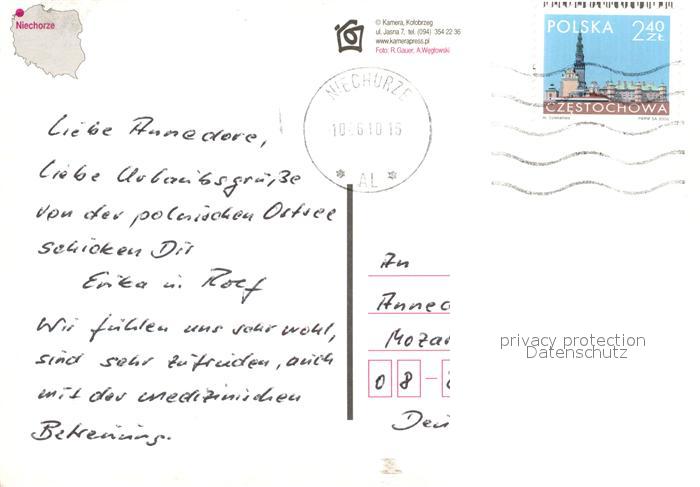 Niechorze
© Kamera, Kołobrzeg
ul. Jasna 7, tel. (094) 354 22 36
www.kamerapress.pl
Foto: R. Gauer, A. Węgłowski
POLSKA 2,40 ZŁ
CZĘSTOCHOWA
NIECHORZE
AL
Liebe Annedore,
liebe Urlaubsgrüße
von der polnischen Ostsee
schicken Dir
Erika u. Rolf
Wir fühlen uns sehr wohl,
sind sehr zufrieden, auch
mit der medizinischen
Betreuung.
An
Anned
Mozar
08-
Deu
privacy protection
Datenschutz